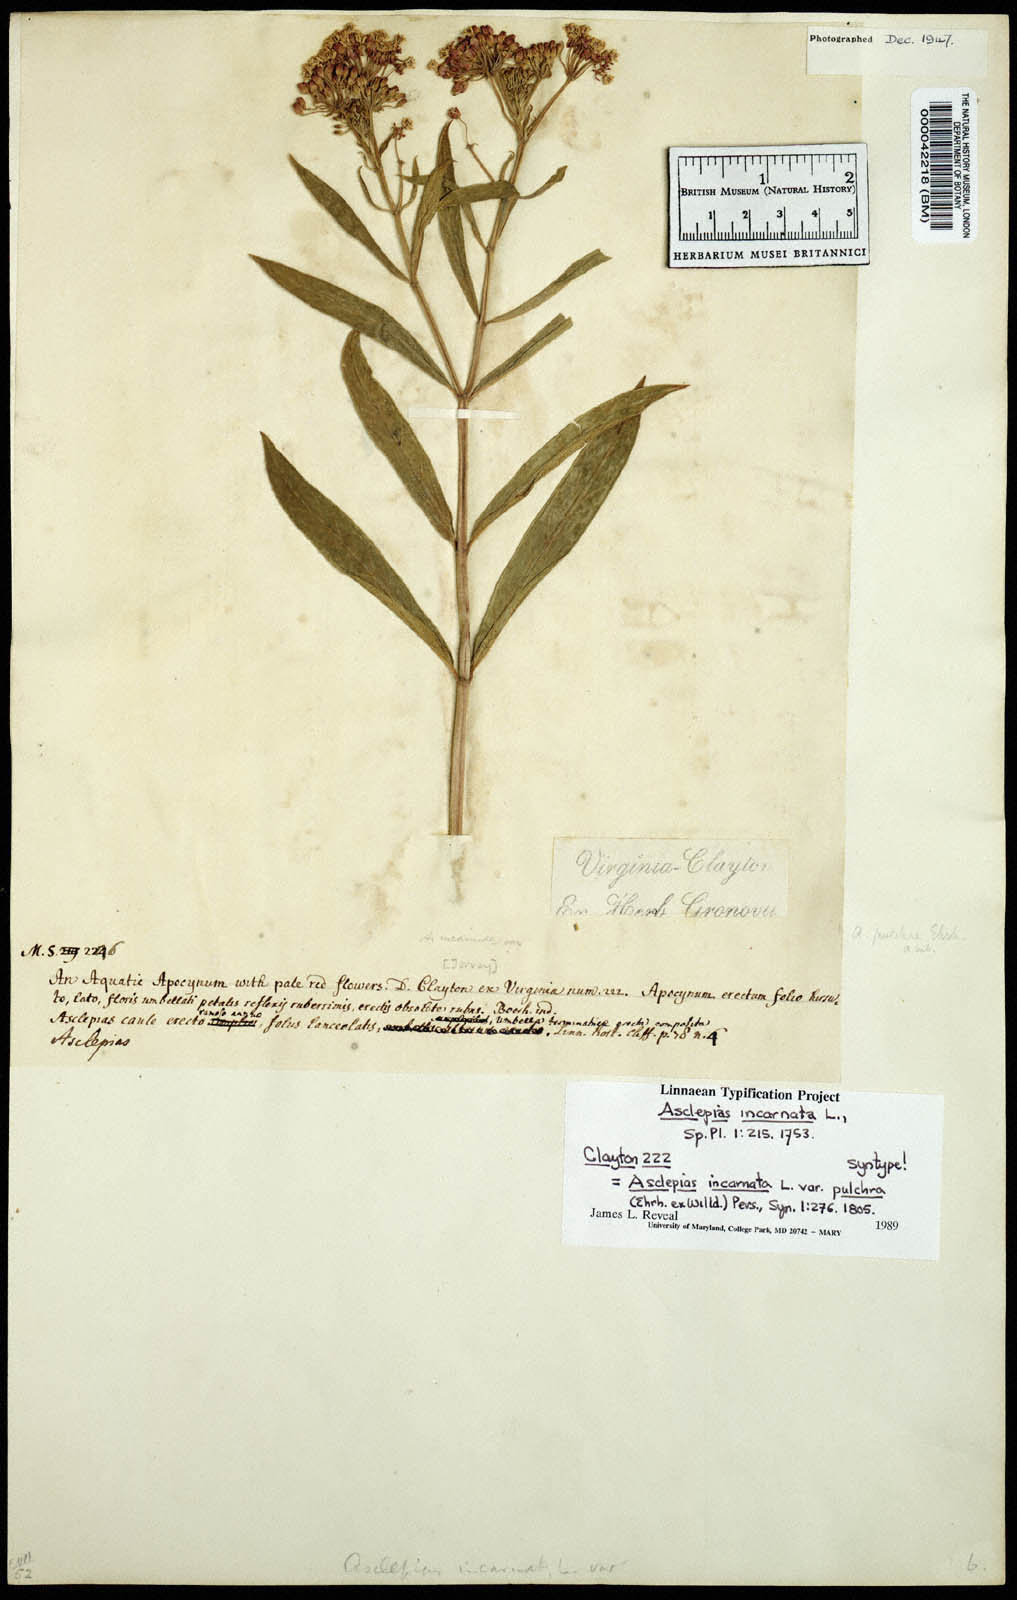 Photographed Dec. 1947.
THE NATURAL HISTORY MUSEUM, LONDON
DEPARTMENT OF BOTANY
000042218 (BM)
1 2
BRITISH MUSEUM (NATURAL HISTORY)
1 2 3 4 5
HERBARIUM MUSEI BRITANNICI
Virginia-Clayton
Ex Herb Gronovii
A. pulchra Ehrh.
[Torrey]
M. S. 226
An Aquatic Apocynum with pale red flowers. D. Clayton ex Virginia num. 222. Apocynum erectum folio hirsu-
to, lato, floris umbellati petalis reflexis ruberrimis, erectis obsolete rubris. Boerh. ind.
Asclepias caule erecto ramoso annuo, foliis lanceolatis, umbellis terminatricibus erectis compositis Linn. hort. Cliff. p. 78 n. 4
Asclepias
Linnaean Typification Project
Asclepias incarnata L.,
Sp. Pl. 1:215. 1753.
Clayton 222 syntype!
= Asclepias incarnata L. var. pulchra
(Ehrh. ex Willd.) Pers., Syn. 1:276. 1805.
James L. Reveal 1989
University of Maryland, College Park, MD 20742 – MARY
52
Asclepias incarnata L. var
6.